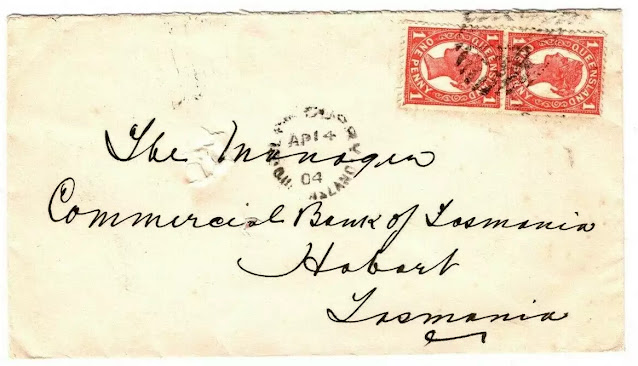 1 1 1 1
QUEENSLAND QUEENSLAND
ONE PENNY ONE PENNY
AP 14
04
QUEENSLAND
The Manager
Commercial Bank of Tasmania
Hobart
Tasmania